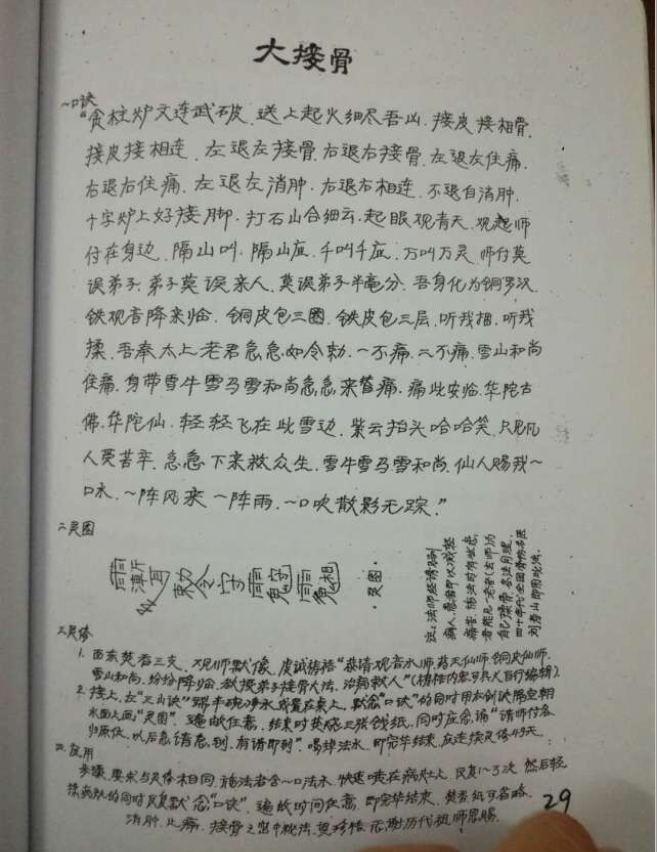 大接骨
一口诀
"贪柱炉文连武破、送上起火细尽吾山、接皮接相骨、
接皮接相连、左退左接骨、右退右接骨、左退左住痛、
右退右住痛、左退左消肿、右退右相连、不退自消肿、
十字炉上好接脚、打石山合细云、起眼观青天、观起师
付在身边、隔山叫、隔山应、千叫千应、万叫万灵、师付莫
误弟子、弟子莫误亲人、莫误弟子半毫分、吾身化为铜罗汉、
铁观音降来临、铜皮包三圈、铁皮包三层、听我捆、听我
揉、吾奉太上老君急急如令勅、一不痛、二不痛、雪山和尚
住痛、身带雪牛雪马雪和尚急急来管痛、痛此安临、华陀古
佛、华陀仙、轻轻飞在此雪边、紫云抬头哈哈笑、只见凡
人受苦辛、急急下来救众生、雪牛雪马雪和尚、仙人赐我一
口水、一阵风来一阵雨、一口吹散影无踪。"
二灵图
勅令
灵图
三灵修
1. 面东焚香三支、观师默像、虔诚祷告"恭请观音水师、药王仙师、铜皮仙师、
雪山和尚、纷纷降临、教授弟子接骨大法、治病救人"
2. 接上、左"三山诀"端半碗净水或置在桌上、默念"口诀"的同时用右剑诀隔空朝
水面上画"灵图"、遍数任意、结束时焚烧三张钱纸、同时应念诵"请师付各
归原位、以后急请急到、有请即到"、喝掉法水、即完毕结束、应连续灵修49天
四应用
步骤、要求与灵修相同、施法者含一口法水、快速喷在病灶上、反复1~3次、然后轻
揉病灶的同时反复默念"口诀"、遍数时间任意、即完毕结束、焚香纸可省略、
消肿、止痛、接骨之宫中秘法、望珍惜、感谢历代祖师恩赐
29